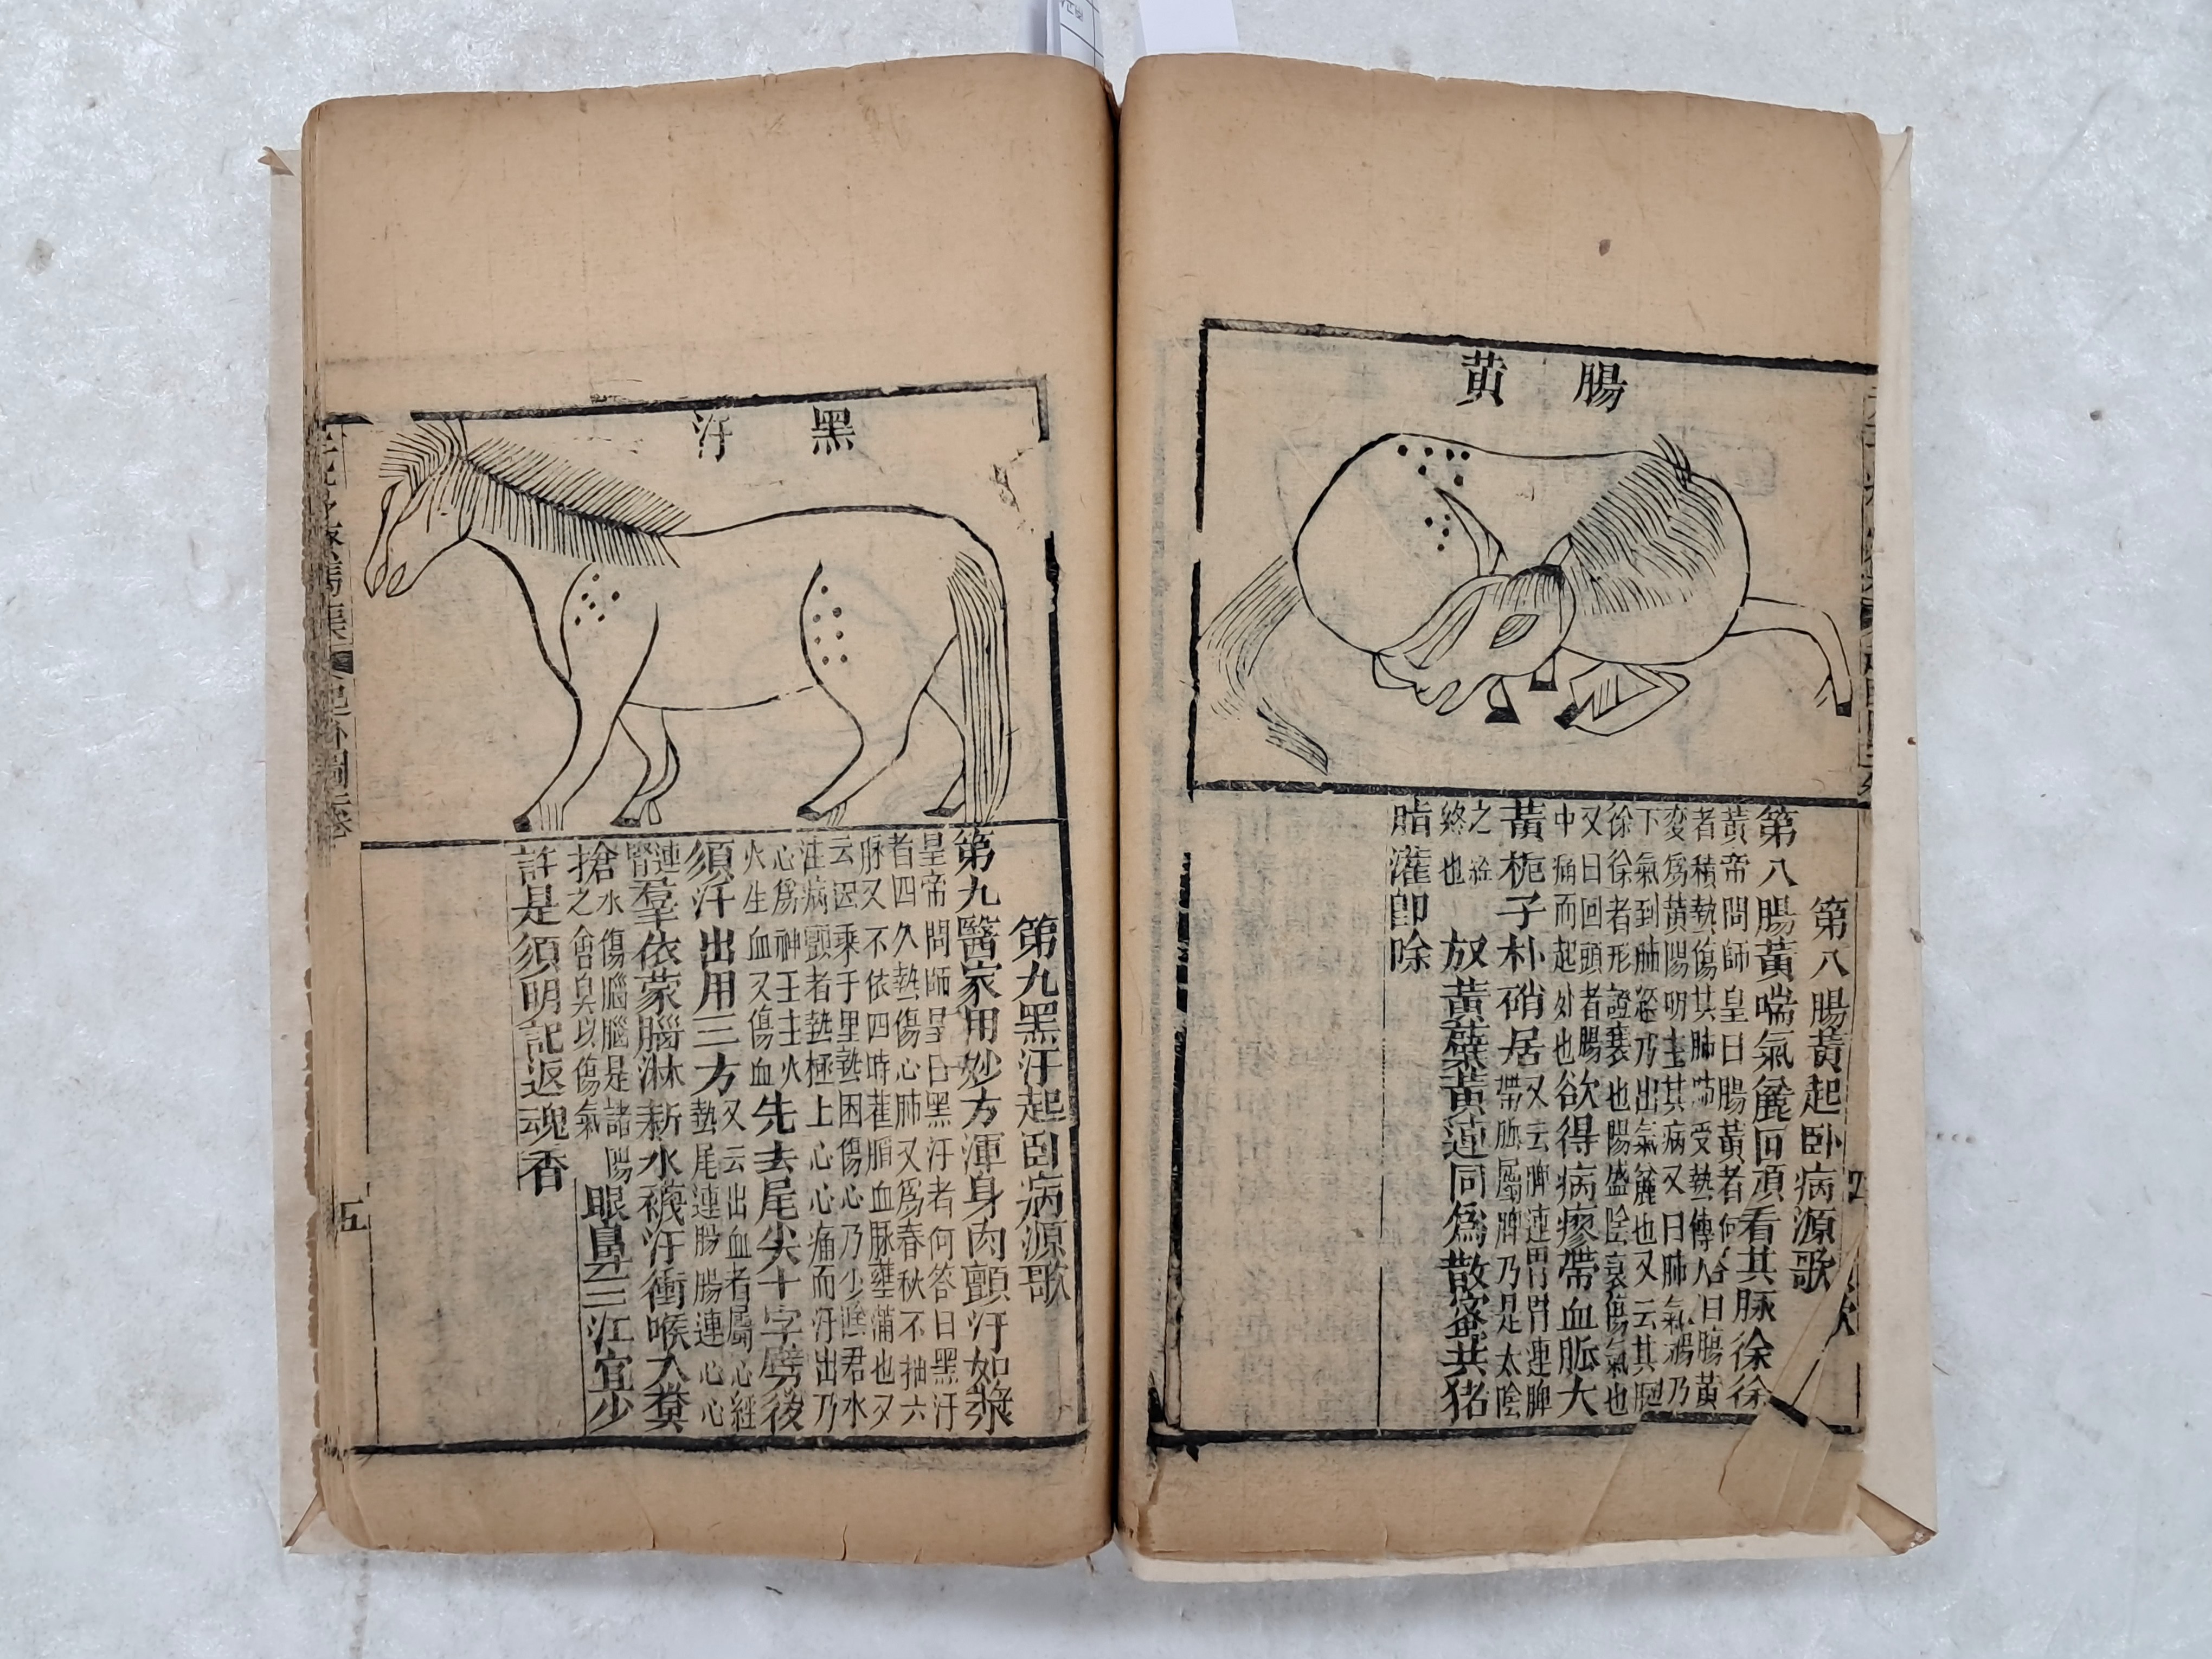 腸黃
第八腸黃起卧病源歌
第八腸黃喘氣麄回頭看其脉徐徐
黃帝問師皇曰腸黃者何答曰腸黃
者積熱傷其肺肺受熱傳人
変爲黃陽明主其病又曰肺氣
下氣到肺乃出氣麄也又云其
徐徐者形證衰也陽盛陰衰傷氣也
又曰回頭者腸
中痛而起处也欲得病瘳帶血脈大
黃梔子朴硝居
又云脾連胃胃連脾
帶脉屬脾乃是太陰
之経
終也
放黃蘗黃連同爲散蜜共猪
脂灌卽除
黑汗
第九黑汗起卧病源歌
第九醫家用妙方渾身肉顫汗如漿
皇帝問師皇曰黑汗者何答曰黑汗
者四久熱傷心肺又爲春秋不抽六
脉又不依四時血脉壅滿也又
云因乘于里熱困傷心乃少君水
注病顫者熱極上心心痛而汗出乃
心爲神王主火
火生血又傷血
先去尾尖十字劈後
須汗出用三方
又云出血者屬心經
熱尾連腸腸連心心
連
腎
羣依蒙腦淋新水襪汗衝喉入糞
搶
水傷腦腦是諸陽
之會臭以傷氣
眼鼻三江宜少
許是須明記返魂香
五